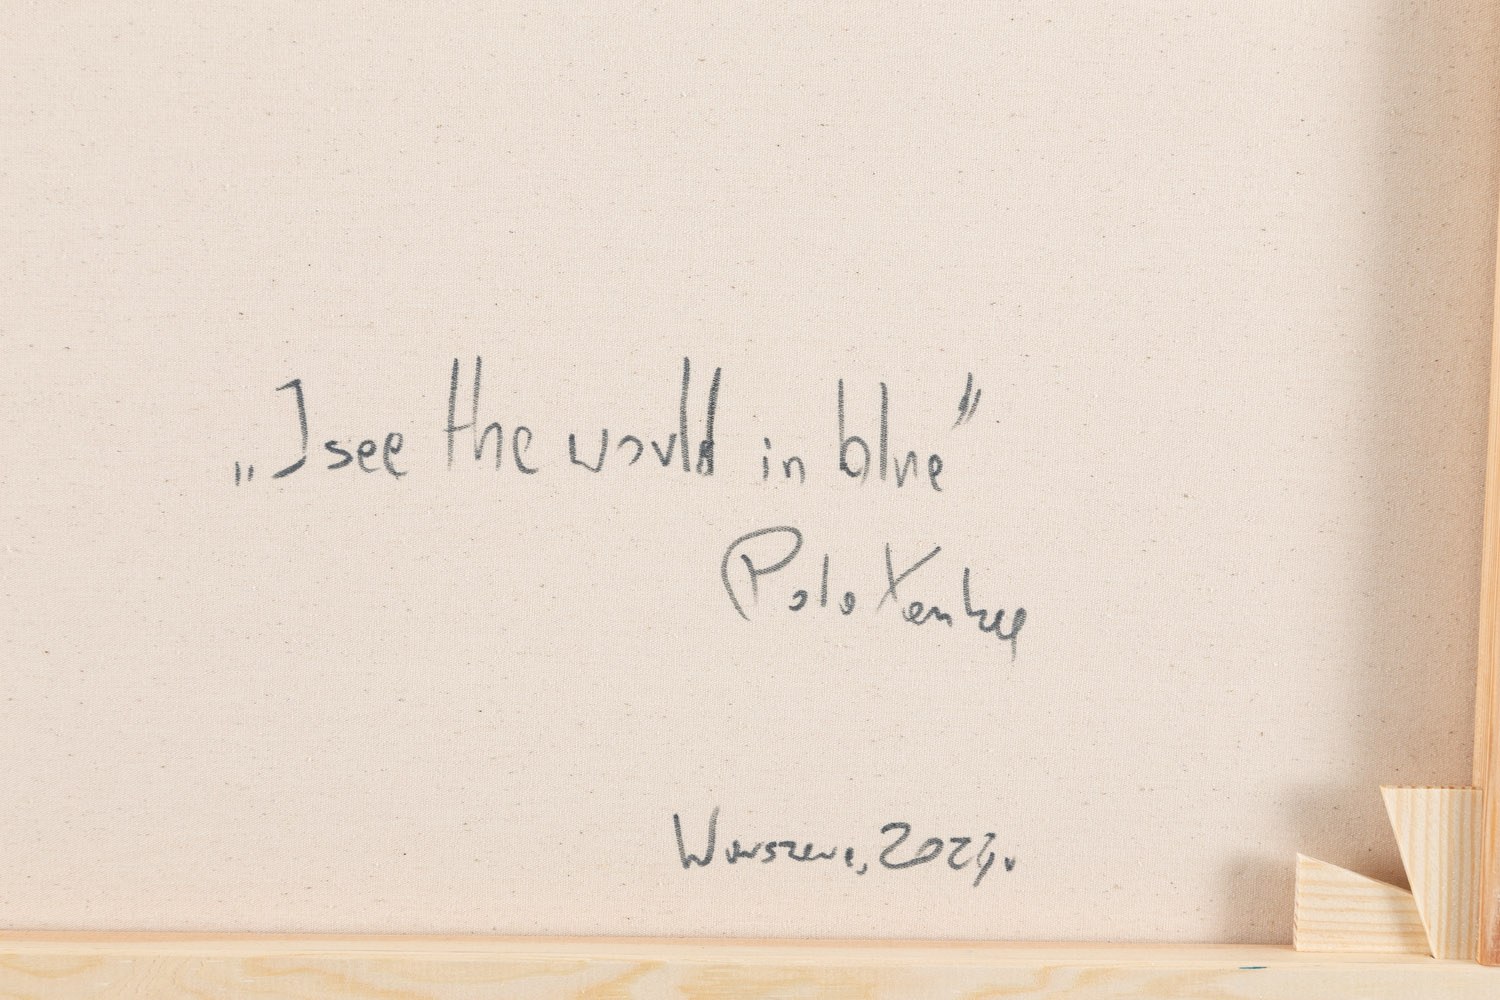 „I see the world in blue”
Polo Yankee
Warszawa, 2024r.